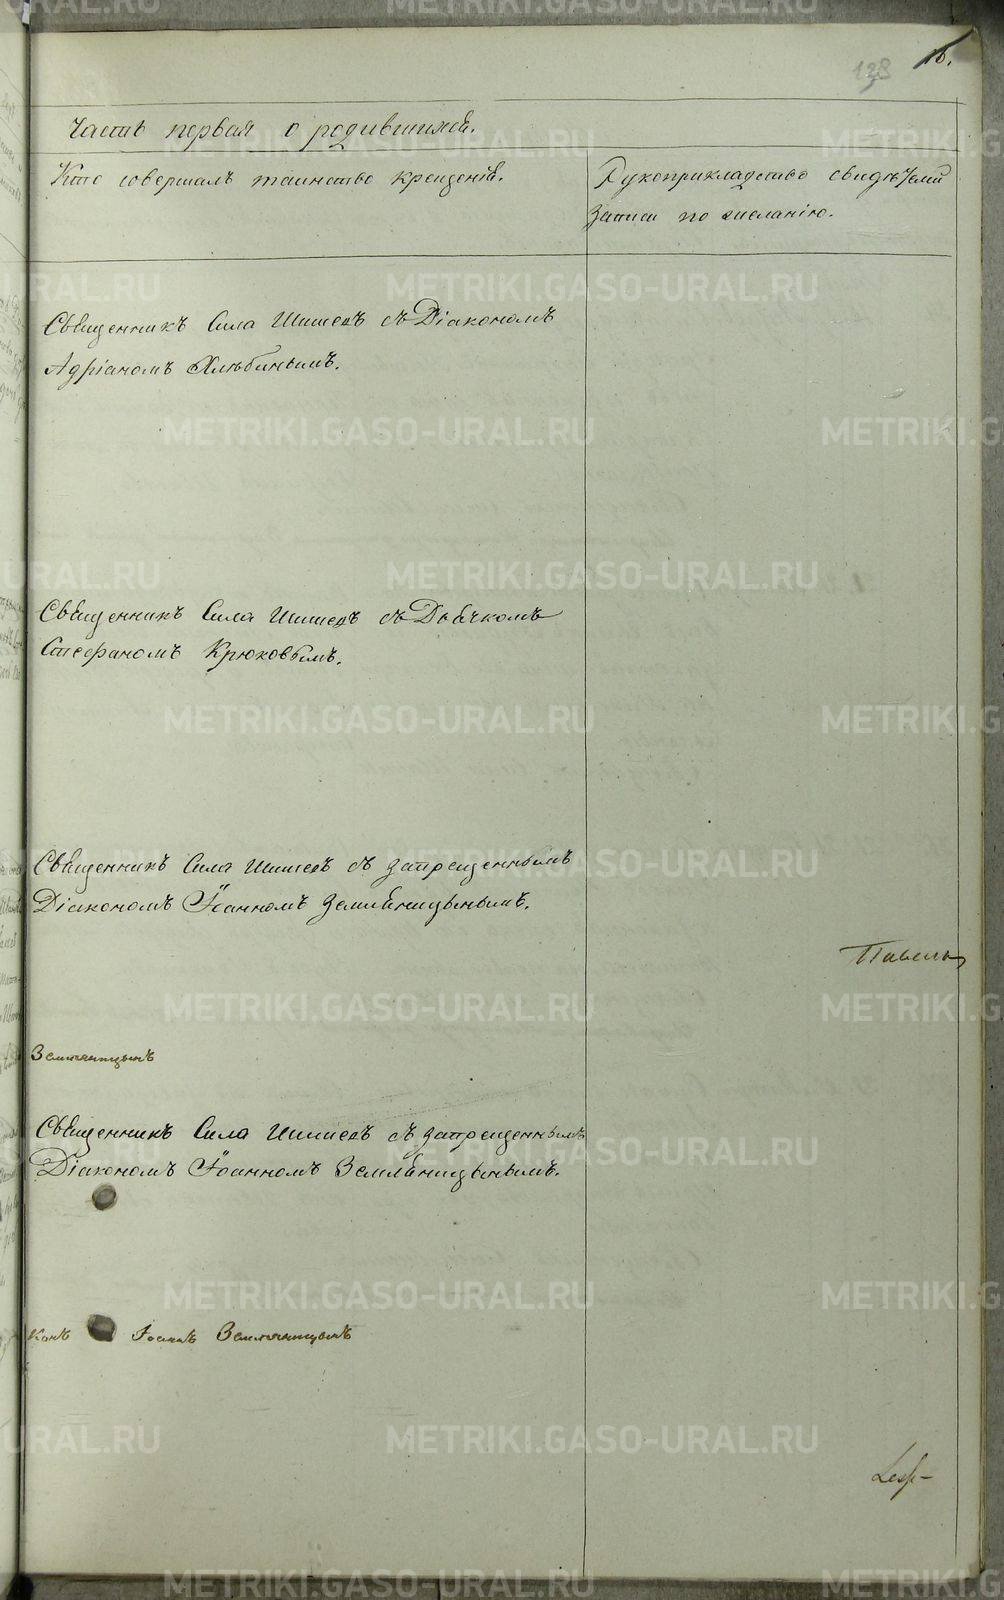 128 16.
Часть первая о родившихся.
Кто совершалъ таинство крещенія.
Рукоприкладство свидѣтелей
записи по желанію.
Священникъ Сила Шишевъ съ Діакономъ
Адріаномъ Хлѣбинымъ.
Священникъ Сила Шишевъ съ Дьячкомъ
Стефаномъ Крюковымъ.
Священникъ Сила Шишевъ съ запрещеннымъ
Діакономъ Іоанномъ Земляницынымъ.
Павелъ
Земляницынъ
Священникъ Сила Шишевъ съ запрещеннымъ
Діакономъ Іоанномъ Земляницынымъ.
конъ Іоаннъ Земляницынъ
METRIKI.GASO-URAL.RU